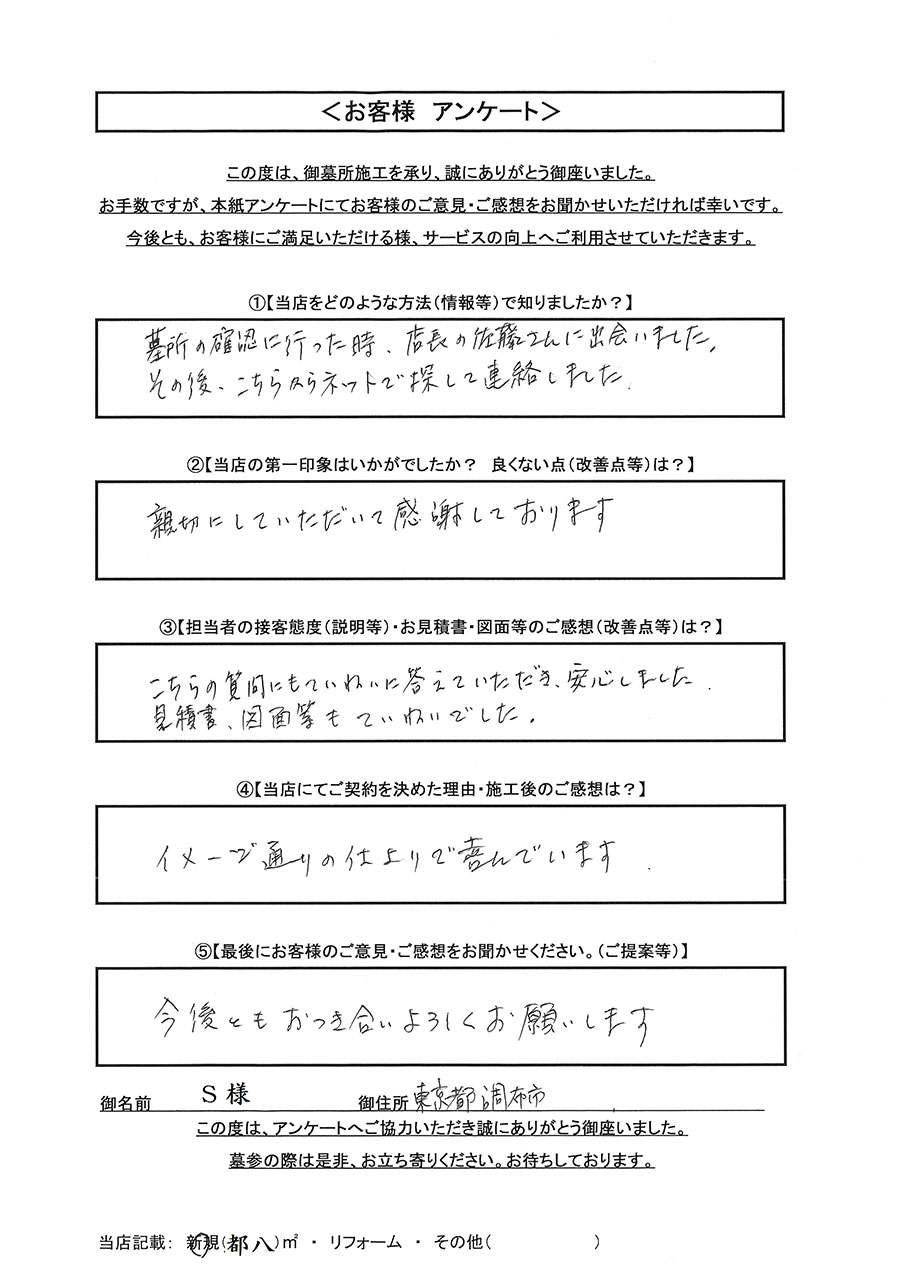 ＜お客様 アンケート＞
この度は、御墓所施工を承り、誠にありがとう御座いました。
お手数ですが、本紙アンケートにてお客様のご意見・ご感想をお聞かせいただければ幸いです。
今後とも、お客様にご満足いただける様、サービスの向上へご利用させていただきます。
①【当店をどのような方法（情報等）で知りましたか？】
墓所の確認に行った時、店長の佐藤さんに出会いました。
その後、こちらからネットで探して連絡しました.
②【当店の第一印象はいかがでしたか？ 良くない点（改善点等）は？】
親切にしていただいて感謝しております
③【担当者の接客態度（説明等）・お見積書・図面等のご感想（改善点等）は？】
こちらの質問にもていねいに答えていただき、安心しました.
見積書、図面等もていねいでした。
④【当店にてご契約を決めた理由・施工後のご感想は？】
イメージ通りの仕上りで喜んでいます.
⑤【最後にお客様のご意見・ご感想をお聞かせください。（ご提案等）】
今後ともおつき合いよろしくお願いします
御名前 S 様 御住所 東京都調布市
この度は、アンケートへご協力いただき誠にありがとう御座いました。
墓参の際は是非、お立ち寄りください。お待ちしております。
当店記載： 新規（都八）㎡ ・ リフォーム ・ その他（ ）